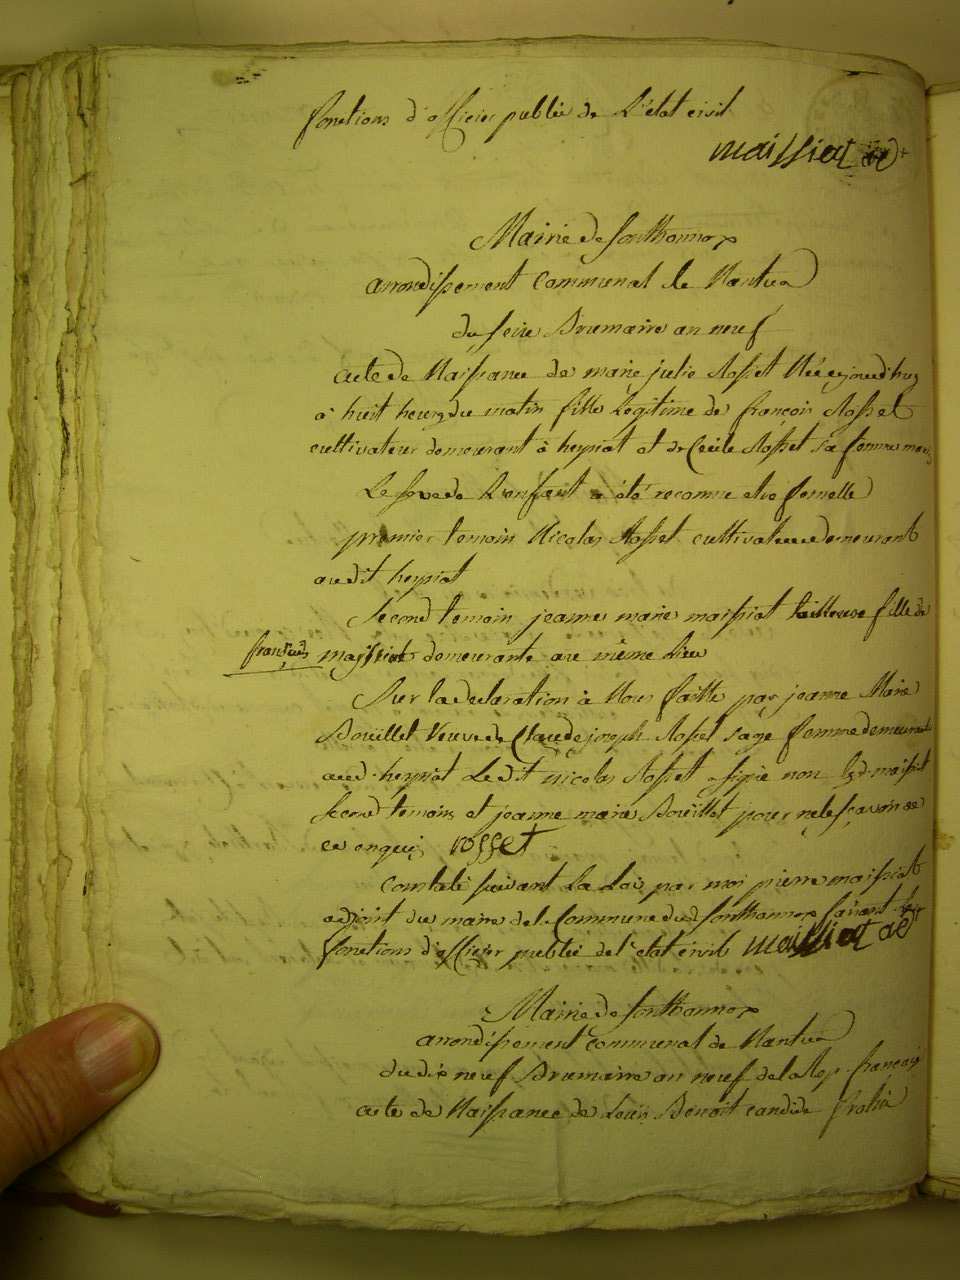 fonctions d'officier public de L'état civil
maissiat adt
Mairie de sonthonnax
arrondissement communal de Nantua
du seize Brumaire an neuf
acte de Naissance de marie julie Rosset Née ajourd'huy
à huit heures du matin fille legitime de françois Rosset
cultivateur demeurant à heyriat et de Cecile Rosset sa femme
Le sexe de L'enfant a été reconnu etre femelle
premier temoin Nicolas Rosset cultivateur demeurant
audit heyriat
second temoin jeanne marie maissiat tailleuse fille de
françois maissiat demeurante au même Lieu
Sur la declaration à Nous faitte par jeanne Marie
Bouillet veuve de Claude joseph Rosset sage femme demeurant
aud. heyriat Ledit nicolas Rosset a signé non Lad. maissiat
second temoin et jeanne marie Bouillet pour ne le sçavoir de
ce enquis rosset
constaté suivant La Loi par moi pierre maissiat
adjoint du maire de la Commune dud. sonthonnax faisant les
fonctions d'officier public de l'état civil maissiat adt
Mairie de sonthonnax
arrondissement communal de Nantua
du dix neuf Brumaire an neuf de la Rep. française
acte de Naissance de Louis Benoit candide